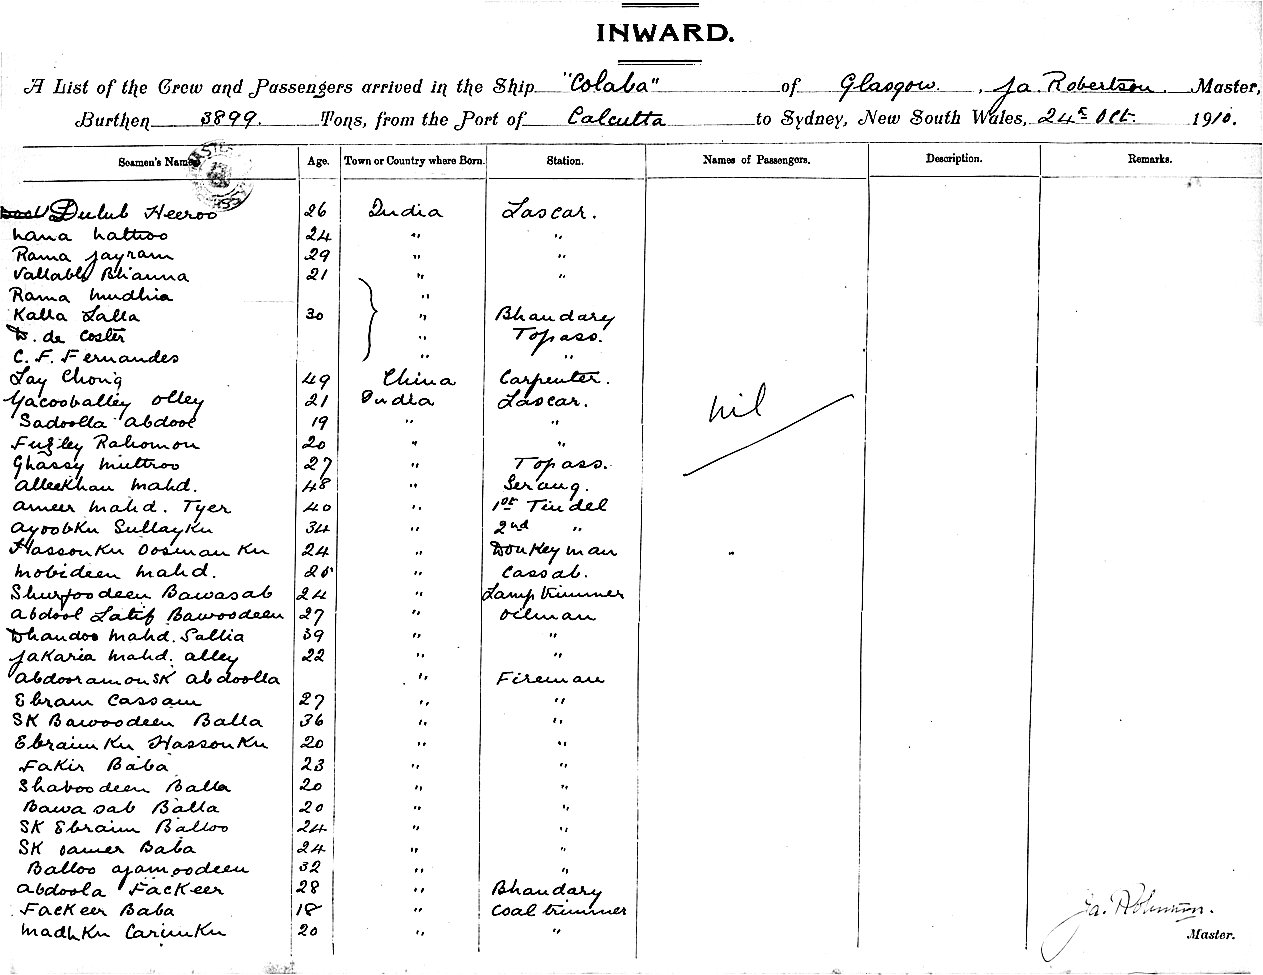 INWARD.
A List of the Crew and Passengers arrived in the Ship "Colaba" of Glasgow, Ja Robertson. Master,
Burthen 3899. Tons, from the Port of Calcutta to Sydney, New South Wales, 24th Oct. 1910.
Seamen's Names Age. Town or Country where Born. Station. Names of Passengers. Description. Remarks.
Dulub Heeroo 26 India Lascar.
24 " "
Rama Jayram 29 " "
Vallabh Bhanna 21 " "
Rama "
Kalla Lalla 30 " Bhandary
D. de Coster " Topass.
C. F. Fernandes " "
Lay Chong 49 China Carpenter.
Yacooballey Olley 21 India Lascar.
Sadoolla Abdool 19 " "
Fuzley Rahomon 20 " "
Ghassy Multroo 27 " Topass.
Alleekhan Mahd. 48 " Serang.
Ameer Mahd. Tyer 40 " 1st Tindel
AyoobKu SullayKu 34 " 2nd "
HassonKu OosmanKu 24 " Donkeyman
Mohideen Mahd. 20 " Cassab.
Shurfoodeen Bawasab 24 " Lamp trimmer
Abdool Latif Bawoodeen 27 " Oilman
Dhandoo Mahd. Sallia 39 " "
Jakaria Mahd. Alley 22 " "
AbdooramonSK Abdoolla " Fireman
Ebram Cassam 27 " "
SK Bawoodeen Balla 36 " "
EbraimKu HassonKu 20 " "
Fakir Baba 23 " "
Shaboodeen Balla 20 " "
Bawasab Balla 20 " "
SK Ebraim Balloo 24 " "
SK Oamer Baba 24 " "
Balloo Ajamoodeen 32 " "
Abdoola Fackeer 28 " Bhandary
Fackeer Baba 18 " Coal trimmer
MadhKu CarimKu 20 " "
Nil
Ja. Robertson.
Master.